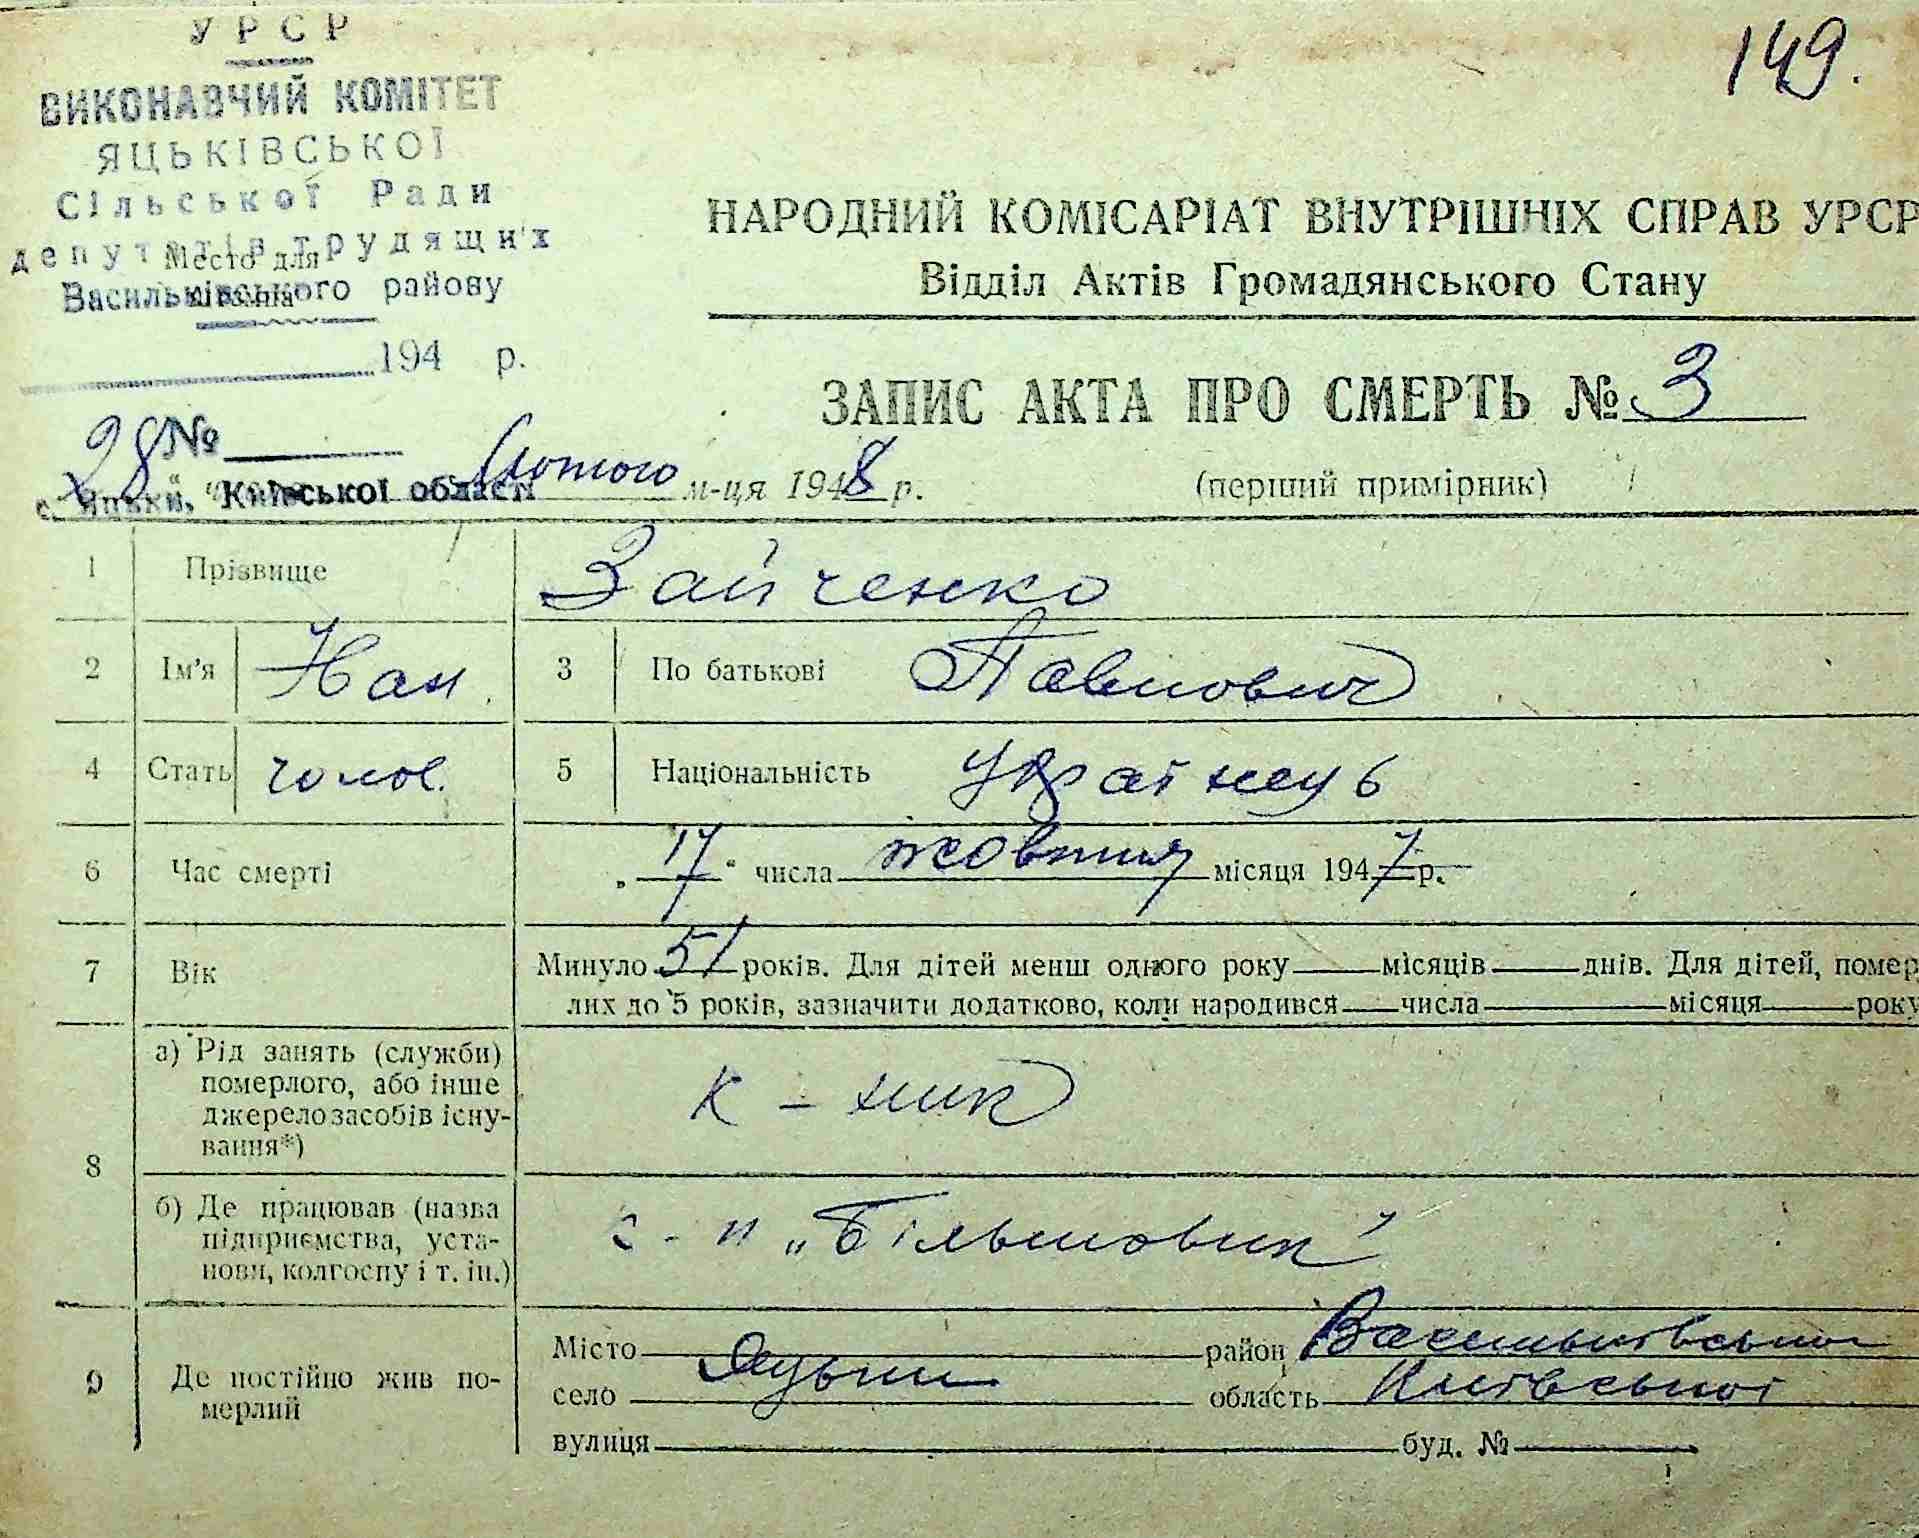 УРСР
149.
ВИКОНАВЧИЙ КОМІТЕТ
ЯЦЬКІВСЬКОЇ
Сільської Ради
депутатів трудящих
Место для
Васильківського району
штампа
194 р.
№
с. Яцьки, Київської області
НАРОДНИЙ КОМІСАРІАТ ВНУТРІШНІХ СПРАВ УРСР
Відділ Актів Громадянського Стану
ЗАПИС АКТА ПРО СМЕРТЬ № 3
28 Лютого м-ця 1948 р.
(перший примірник)
1 Прізвище Зайченко
2 Ім'я Іван 3 По батькові Павлович
4 Стать чолов. 5 Національність українець
6 Час смерті „17“ числа жовтня місяця 1947 р.
7 Вік Минуло 51 років. Для дітей менш одного року місяців днів. Для дітей, помер
лих до 5 років, зазначити додатково, коли народився числа місяця року
8 а) Рід занять (служби)
померлого, або інше
джерело засобів існу-
вання*)
к-ник
б) Де працював (назва
підприємства, уста-
нови, колгоспу і т. ін.)
к-п „Більшовик"
9 Де постійно жив по-
мерлий
Місто район Васильківського
село Яцьки область Київської
вулиця буд. №